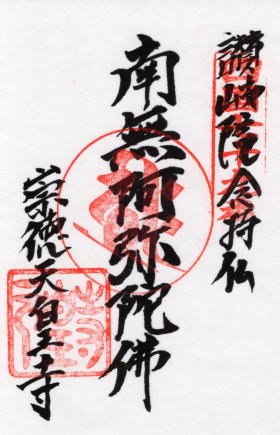 讃岐院念持仏
南無阿弥陀佛
崇徳天皇寺